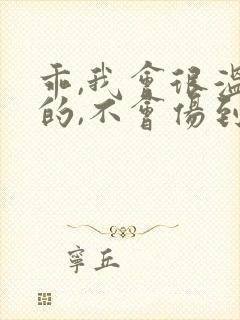 乖,我會很溫
的,不會傷到
寧丘